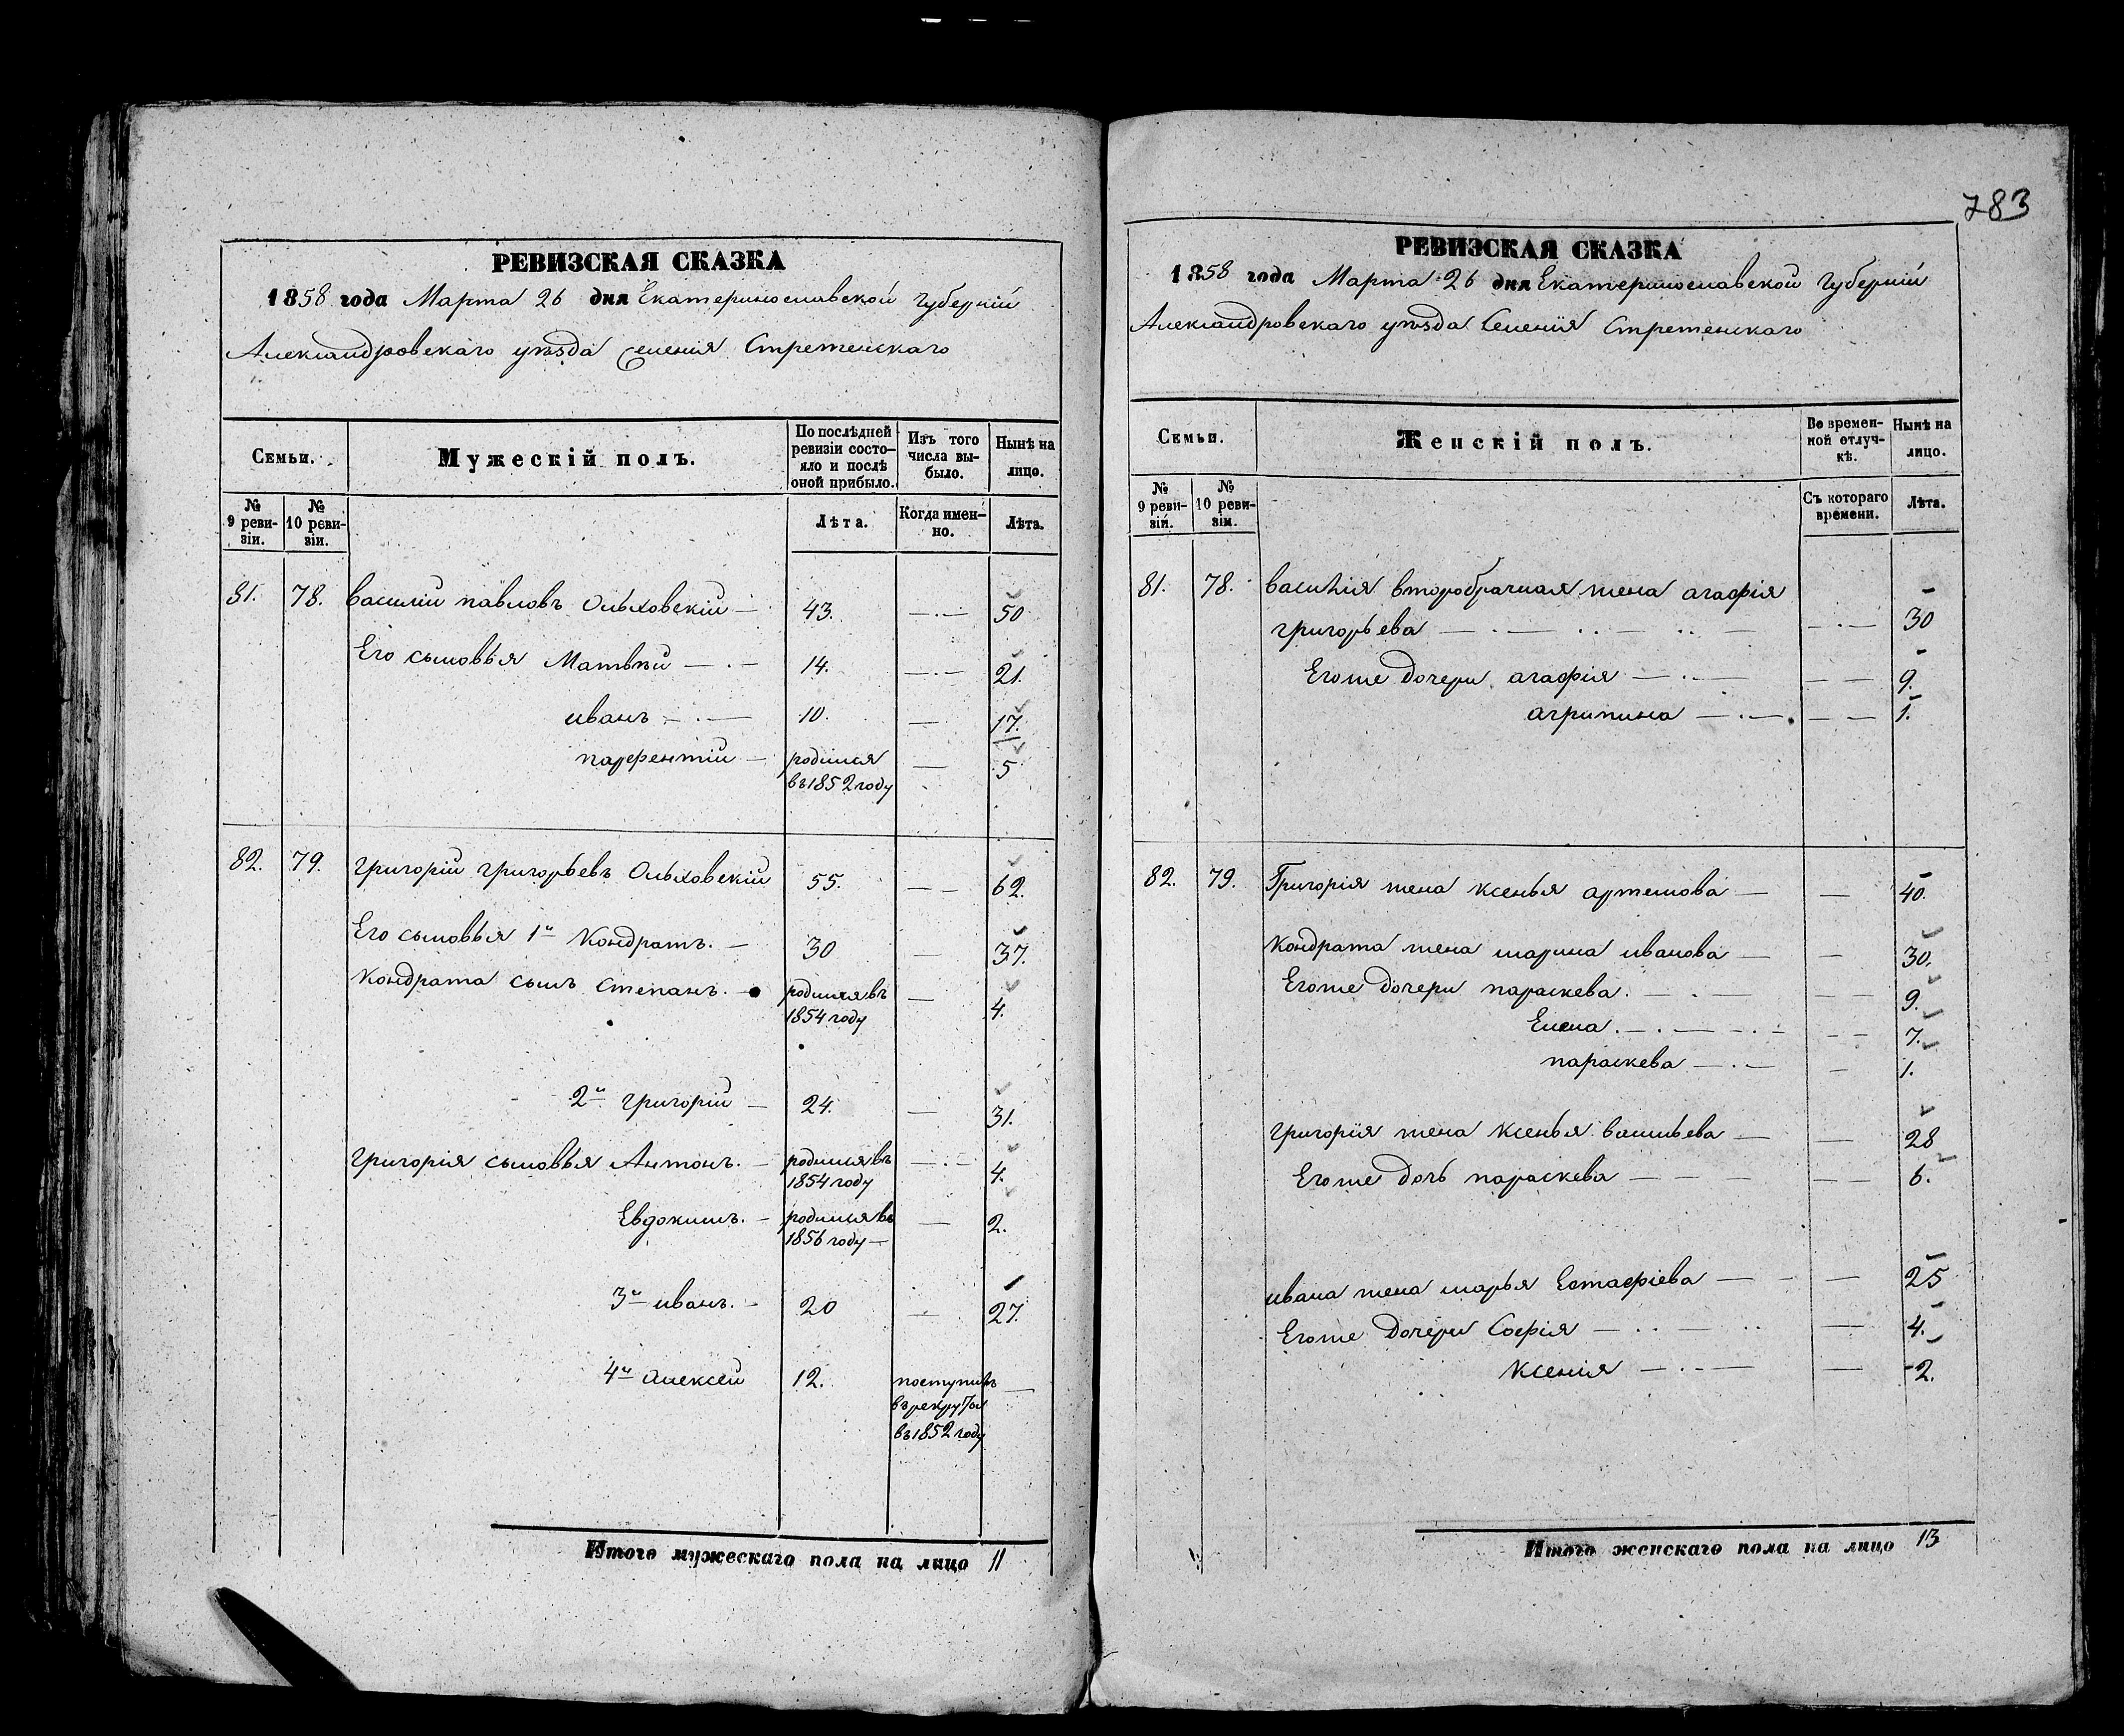 783
РЕВИЗСКАЯ СКАЗКА
1858 года Марта 26 дня Екатеринославской губерніи
Александровскаго уѣзда Селенія Стретенскаго
Семьи.
Мужескій полъ.
По послѣдней ревизіи состояло и послѣ оной прибыло.
Изъ того числа выбыло.
Нынѣ на лицо.
№ 9 ревизіи.
№ 10 ревизіи.
Лѣта.
Когда именно.
Лѣта.
81. 78. Василій павловъ Ольховскій — 43. —·— 50
Его сыновья Матвѣй —·— 14. —·— 21.
иванъ —·— 10. — 17.
парфентій — родился въ 1852 году — 5
82. 79. григорій григорьевъ Ольховскій 55. — — 62.
Его сыновья 1й Кондратъ. — 30 — 37.
Кондрата сынъ Степанъ. — родился въ 1854 году — 4.
2й григорій — 24. — 31.
григорія сыновья Антонъ. — родился въ 1854 году —·— 4.
Евдокимъ. — родился въ 1856 году — — 2.
3й иванъ. — 20 — 27.
4й алексей 12. поступилъ въ рекруты въ 1852 году —
Итого мужескаго пола на лицо 11
РЕВИЗСКАЯ СКАЗКА
1858 года Марта 26 дня Екатеринославской губерніи
Александровскаго уѣзда Селенія Стретенскаго
Семьи.
Женскій полъ.
Во временной отлучкѣ.
Нынѣ на лицо.
№ 9 ревизіи.
№ 10 ревизіи.
Съ котораго времени.
Лѣта.
81. 78. василія второбрачная жена агафія
григорьева — 30
Егоже дочери агафія — 9.
агрипина — 1.
82. 79. Григорія жена ксенья артемова — — 40.
Кондрата жена марина иванова — — 30.
Егоже дочери параскева. — 9.
Елена. — 7.
параскева — 1.
григорія жена ксенья васильева — — 28
Егоже дочь параскева — 6.
ивана жена марья Естафіева — 25
Егоже дочери Софія — 4.
ксенія — 2.
Итого женскаго пола на лицо 13